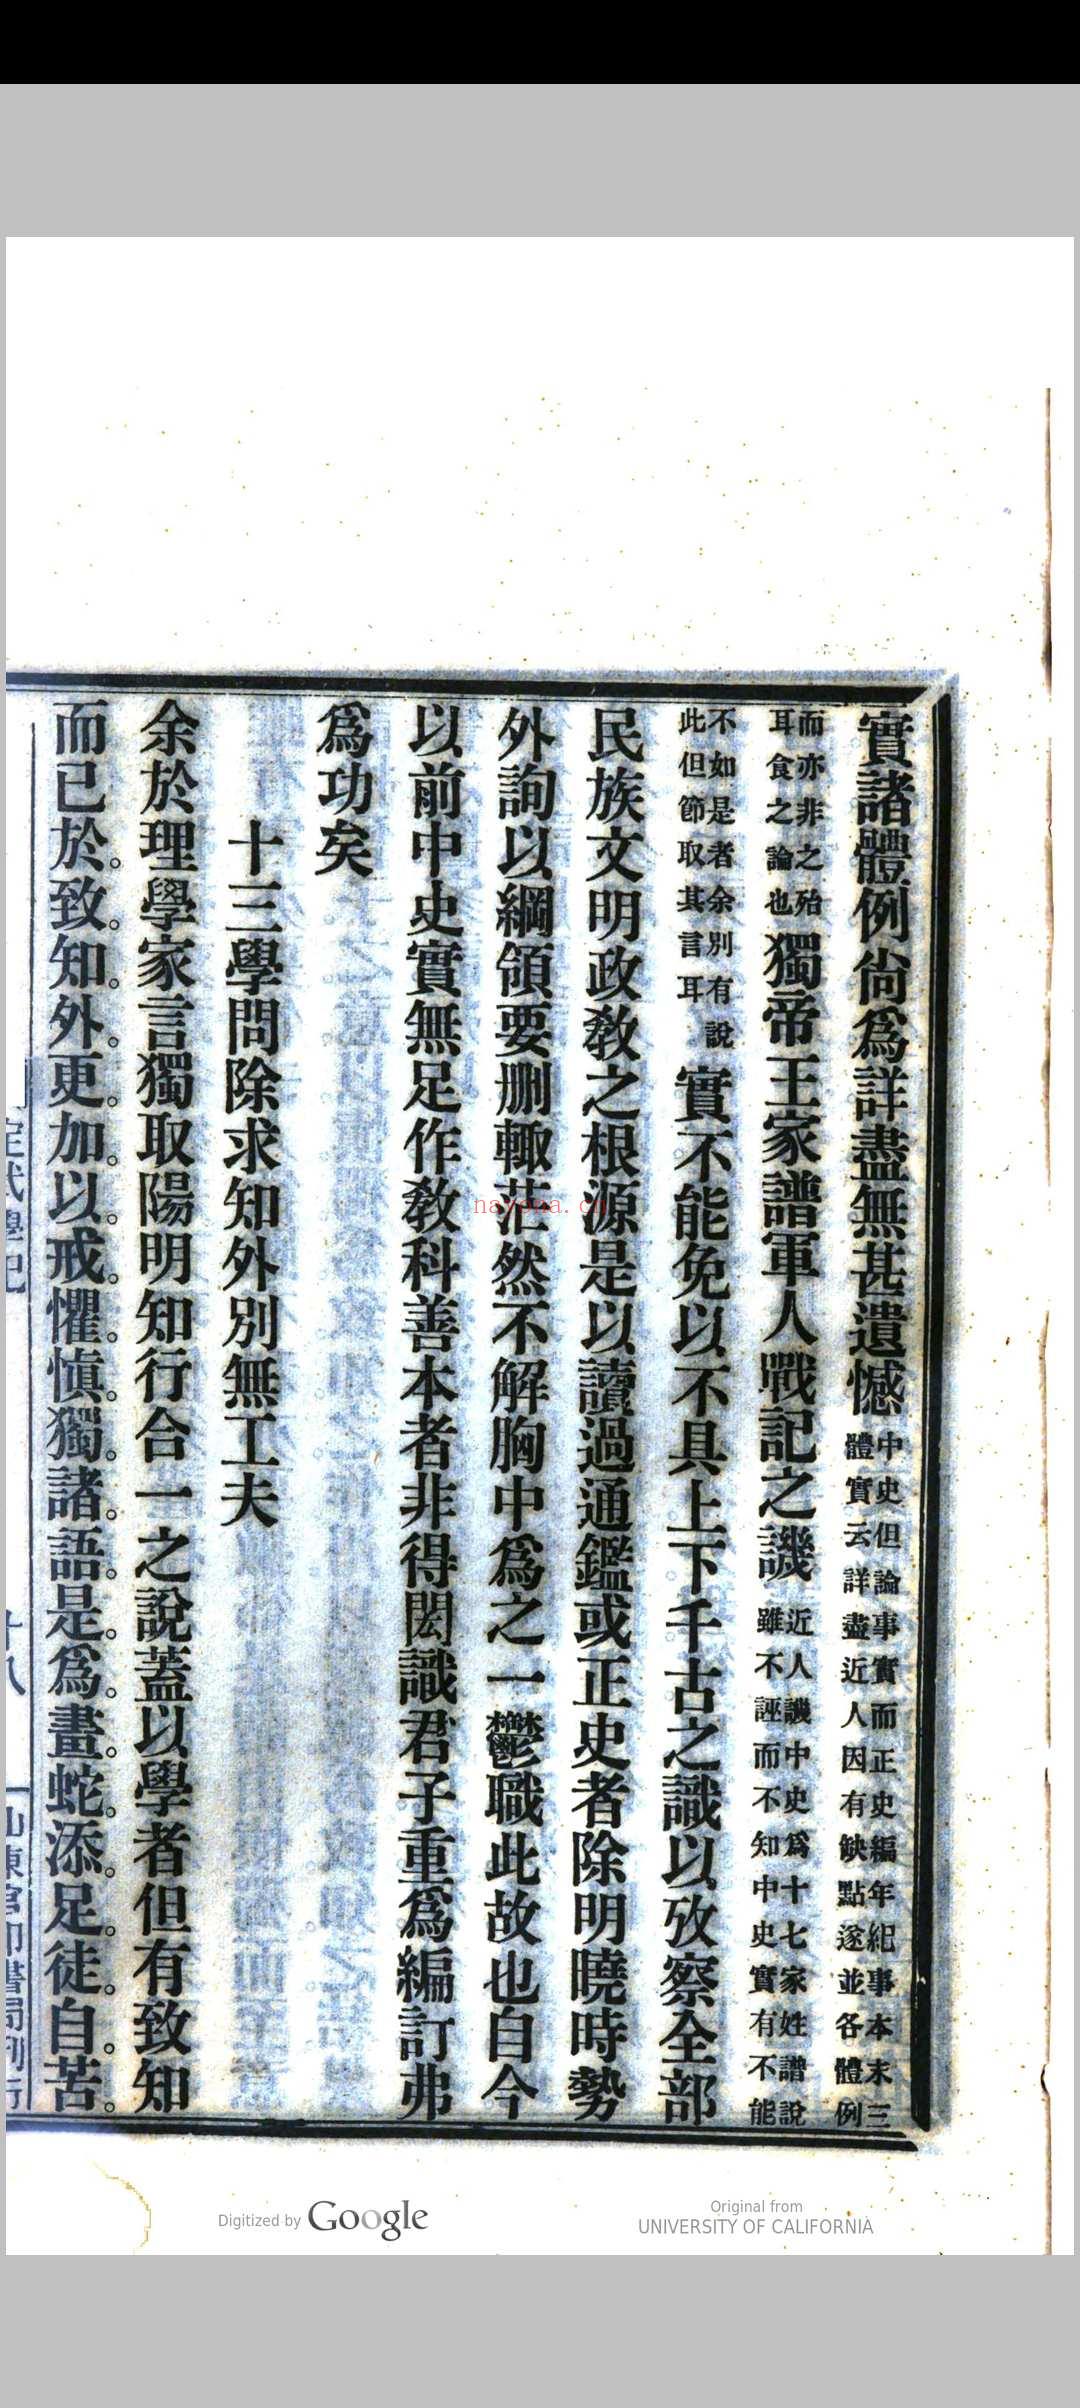 實諸體例尙爲詳盡無甚遺憾中史但論事實而正史編年紀事本末三體實云詳盡近人因有缺點遂並各體例
而亦非之殆耳食之論也獨帝王家譜軍人戰記之譏近人譏中史爲十七家姓譜說雖不誣而不知中史實有不能
不如是者余別有說此但節取其言耳實不能免以不具上下千古之識以攷察全部
民族文明政敎之根源是以讀過通鑑或正史者除明曉時勢
外詢以綱領要刪輙茫然不解胸中爲之一鬱職此故也自今
以前中史實無足作敎科善本者非得閎識君子重爲編訂弗
爲功矣
十三學問除求知外別無工夫
余於理學家言獨取陽明知行合一之說蓋以學者但有致知
而已於。致。知。外。更。加。以。戒。懼。愼。獨。諸。語。是。爲。畫。蛇。添。足。徒。自。苦。
十八
山東官印書局刊行
nayona.cn
Digitized by Google
Original from
UNIVERSITY OF CALIFORNIA